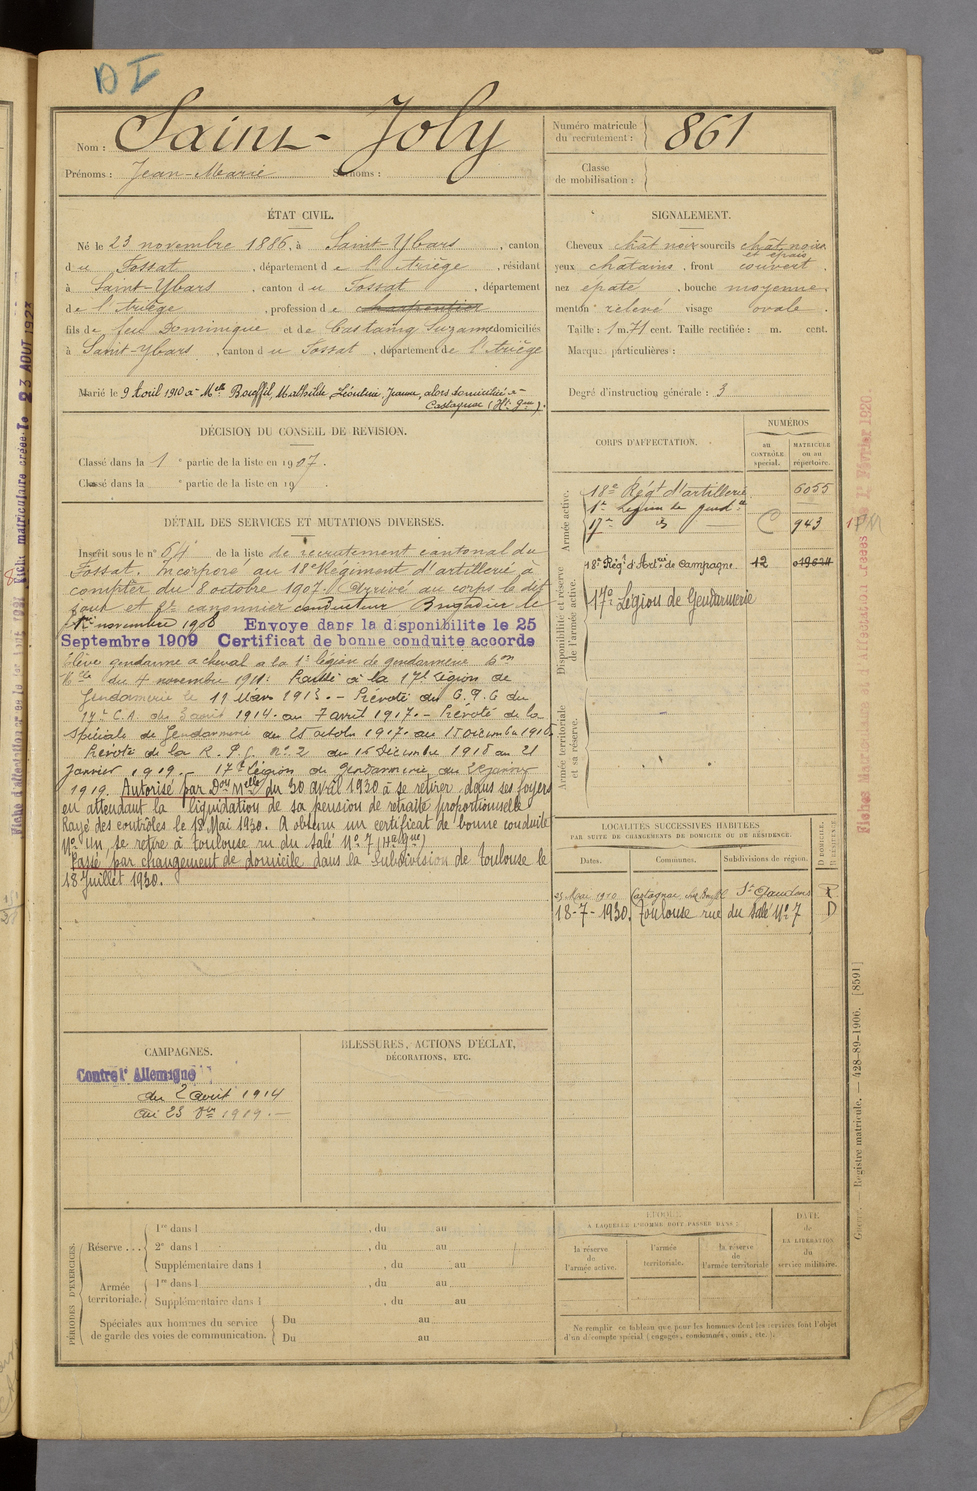 D I
Nom : Saint-Joly
Prénoms : Jean-Marie Surnoms :
Numéro matricule du recrutement : 861
Classe de mobilisation :
ÉTAT CIVIL.
Né le 23 novembre 1886, à Saint-Ybars, canton
du Fossat, département de l'Ariège, résidant
à Saint-Ybars, canton du Fossat, département
de l'Ariège, profession de charpentier
fils de feu Dominique et de Castaing Suzanne domiciliés
à Saint-Ybars, canton du Fossat, département de l'Ariège
Marié le 9 Avril 1910 à Melle Bouffil Mathilde, Léontine, Jeanne, alors domiciliée à
Castagnac (Hte Gne).
SIGNALEMENT.
Cheveux chât noir sourcils chât noirs
et épais
yeux châtains, front couvert.
nez épaté, bouche moyenne
menton relevé visage ovale.
Taille : 1 m. 71 cent. Taille rectifiée : m. cent.
Marques particulières :
Degré d'instruction générale : 3
DÉCISION DU CONSEIL DE REVISION.
Classé dans la 1e partie de la liste en 1907.
Classé dans la e partie de la liste en 19
DÉTAIL DES SERVICES ET MUTATIONS DIVERSES.
Inscrit sous le n° 64 de la liste de recrutement cantonal du
Fossat. Incorporé au 18e Régiment d'artillerie à
compter du 8 octobre 1907. Arrivé au corps le dit
jour et 2e canonnier conducteur Brigadier le
1er novembre 1908 Envoye dans la disponibilite le 25
Septembre 1909 Certificat de bonne conduite accorde
Élève gendarme à cheval à la 1e légion de gendarmerie
du 4 novembre 1911: Passé à la 17e Légion de
Gendarmerie le 11 Mars 1913. - Prévôté du G.Q.G du
17e C.A. du 3 août 1914 au 7 avril 1917. - Prévôté de la
spéciale de Gendarmerie du 25 octobre 1917 au 15 Décembre 1918
Prévôté de la R.P.G. No 2 du 16 Décembre 1918 au 21
Janvier 1919. - 17e Légion de Gendarmerie du 22 janvier
1919. Autorisé par Don Melle du 30 avril 1930 à se retirer dans ses foyers
en attendant la liquidation de sa pension de retraite proportionnelle
Rayé des contrôles le 18 Mai 1930. A obtenu un certificat de bonne conduite
No Un, se retire à Toulouse ru du Salé No 7 (Hte Gne)
Passé par changement de domicile dans la Subdivision de Toulouse le
18 Juillet 1930.
CORPS D'AFFECTATION.
NUMÉROS
au CONTRÔLE spécial.
MATRICULE ou au répertoire.
Armée active.
18e Régt d'artillerie 6055
1e Légion de gendie
17e d° C 943
Disponibilité et réserve de l'armée active.
18e Régt d'Artrie de Campagne 12 019624
17e Légion de Gendarmerie
Armée territoriale et sa réserve.
LOCALITÉS SUCCESSIVES HABITÉES
PAR SUITE DE CHANGEMENTS DE DOMICILE OU DE RÉSIDENCE.
Dates. Communes. Subdivisions de région. D DOMICILE. R RÉSIDENCE
25 Mai 1910 Castagnac chez Bouffil St Gaudens R
18-7-1930. Toulouse rue du Salé No 7 D
CAMPAGNES.
Contre l'Allemagne
du 2 août 1914
au 23 8bre 1919. -
BLESSURES, ACTIONS D'ÉCLAT,
DÉCORATIONS, ETC.
PÉRIODES D'EXERCICES.
Réserve ... 1re dans l , du au
2e dans l , du au
Supplémentaire dans l , du au
Armée territoriale. 1re dans l , du au
Supplémentaire dans l , du au
Spéciales aux hommes du service
de garde des voies de communication. Du au
Du au
ÉPOQUE
À LAQUELLE L'HOMME DOIT PASSER DANS :
la réserve de l'armée active.
l'armée territoriale.
la réserve de l'armée territoriale
DATE de LA LIBÉRATION du service militaire.
Ne remplir ce tableau que pour les hommes dont les services font l'objet
d'un décompte spécial (engagés, condamnés, omis, etc.).
Registre matricule. — 428-89-1906. [8591]
Fiches Matr Affectation créées le 1r Février 1920
Fiche matriculaire créée le 23 AOUT 1927